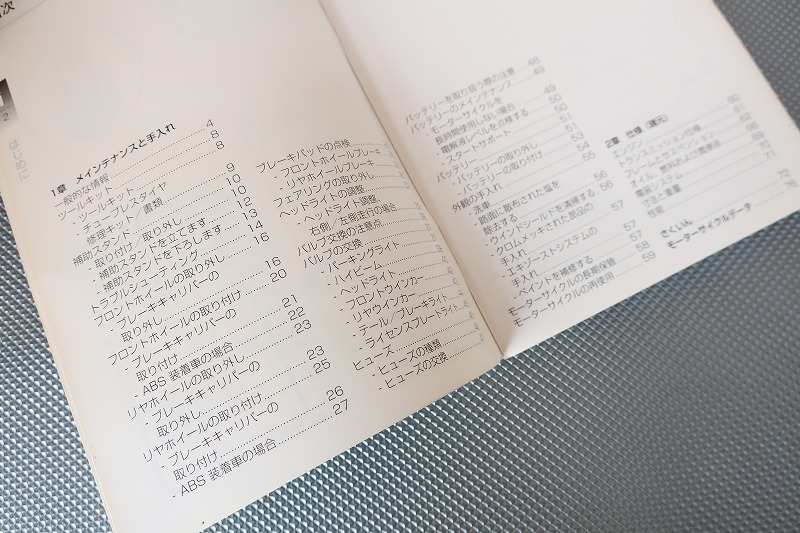 次
1
2
はじめに
1章 メインテナンスと手入れ
一般的な情報 4
ツールキット 8
- ツールキット 8
- チューブレスタイヤ
修理キット/書類 9
補助スタンド 10
- 取り付け/取り外し 10
- 補助スタンドを立てます 12
- 補助スタンドを下ろします 13
トラブルシューティング 14
フロントホイールの取り外し 16
- ブレーキキャリパーの
取り外し 16
フロントホイールの取り付け 20
- ブレーキキャリパーの
取り付け 21
- ABS 装着車の場合 22
リヤホイールの取り外し 23
- ブレーキキャリパーの
取り外し 23
リヤホイールの取り付け 25
- ブレーキキャリパーの
取り付け 26
- ABS 装着車の場合 27
ブレーキパッドの点検
- フロントホイールブレーキ
- リヤホイールブレーキ
フェアリングの取り外し
ヘッドライトの調整
- ヘッドライト調整
右側/左側走行の場合
バルブ交換の注意点
バルブの交換
- パーキングライト
- ハイビーム
- ヘッドライト
- フロントウインカー
- リヤウインカー
- テール/ブレーキライト
- ライセンスプレートライト
ヒューズ
- ヒューズの種類
- ヒューズの交換
バッテリーを取り扱う際の注意 48
バッテリーのメインテナンス 49
- モーターサイクルを
長時間使用しない場合 49
- 電解液レベルを点検する 50
- スタートサポート 50
バッテリー 51
- バッテリーの取り外し 53
- バッテリーの取り付け 54
外観の手入れ 55
- 洗車
- 路面に散布された塩を
除去する
- ウインドシールドを清掃する 56
- クロムメッキされた部品の
手入れ 57
- エキゾーストシステムの
手入れ
- ペイントを補修する 58
モーターサイクルの長期保管 58
モーターサイクルの再使用 59
2章 仕様(諸元)
エンジン 60
トランスミッション仕様 61
フレームとサスペンション
オイル、燃料および潤滑油
電装システム
寸法と重量
性能
さくいん
モーターサイクルデータ